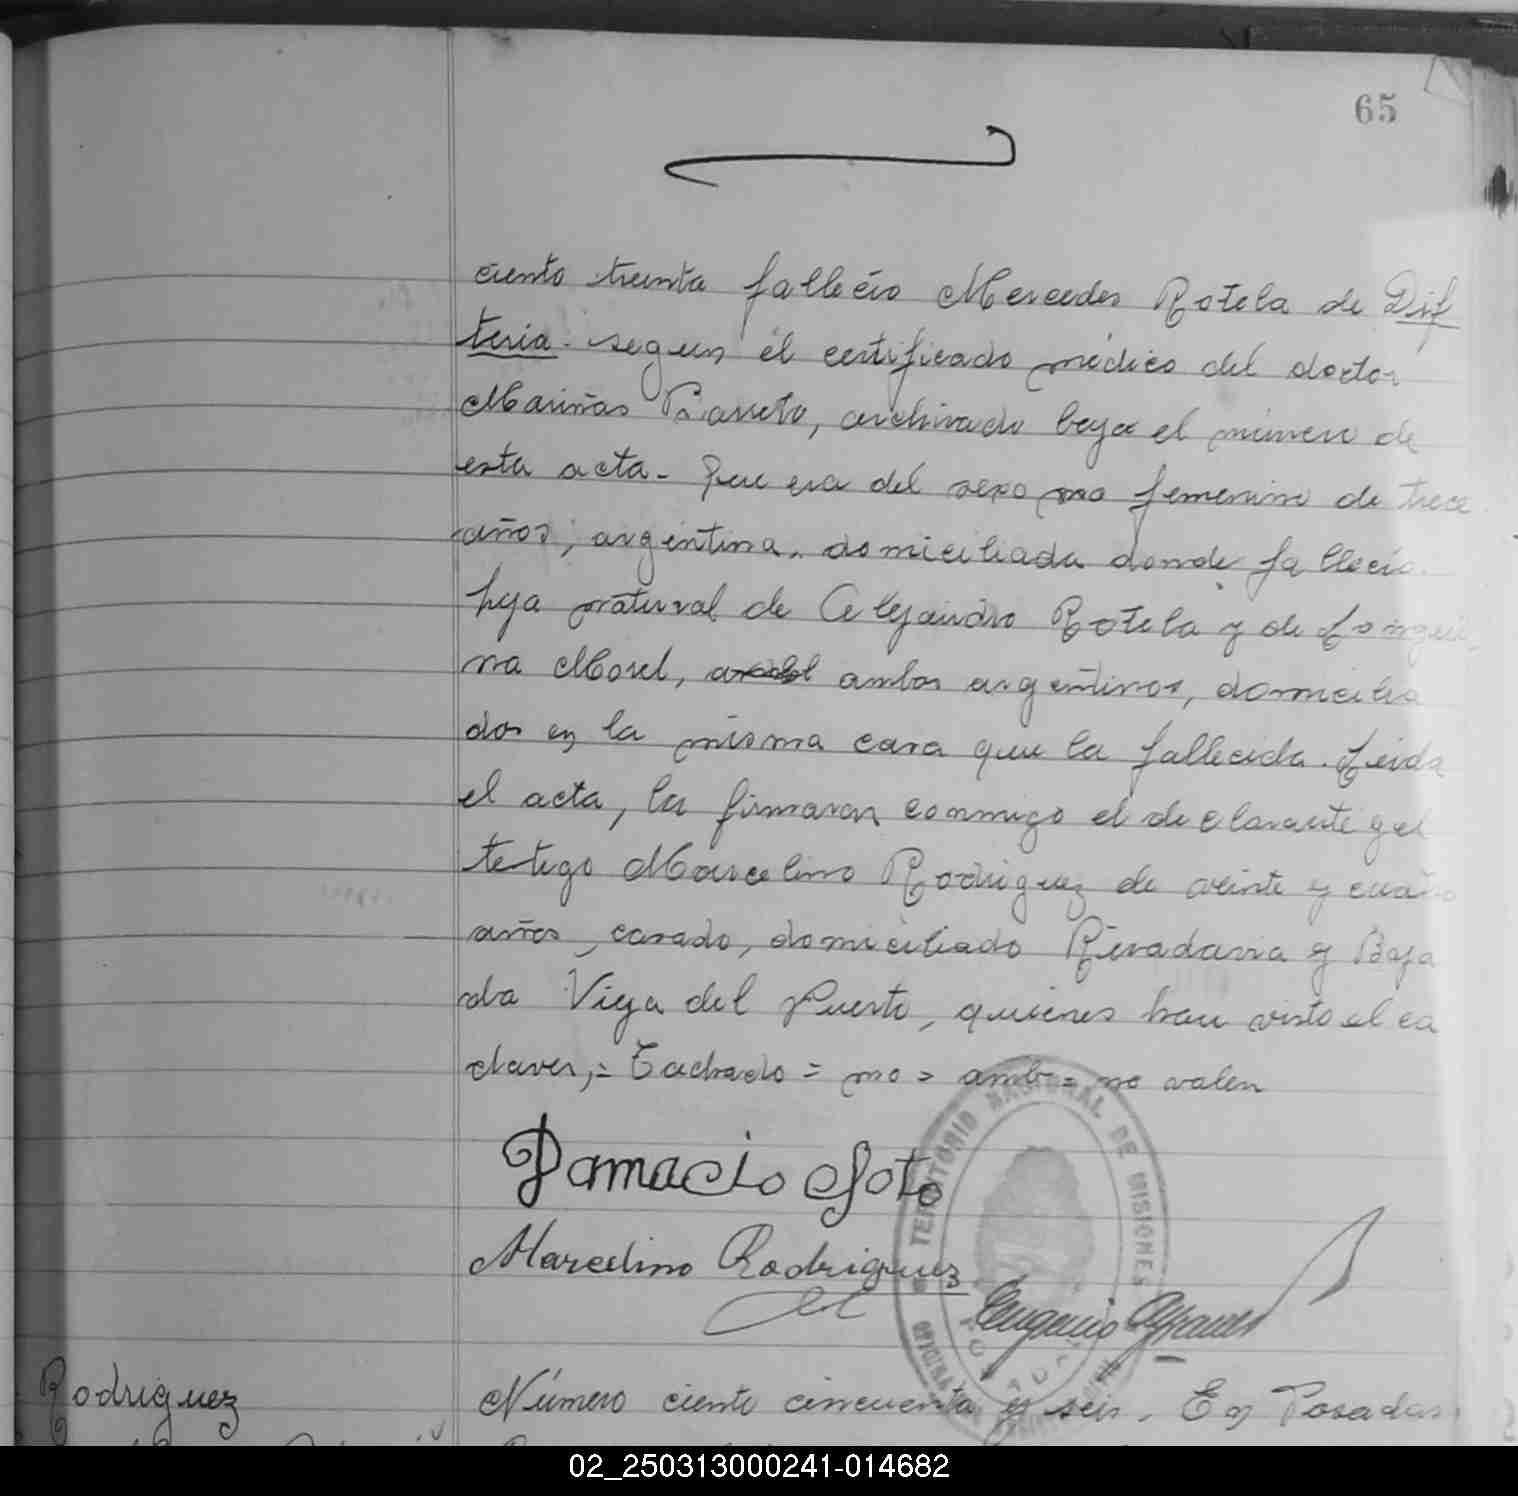 65
ciento treinta falleció Mercedes Rotela de Dif
teria. segun el certificado médico del doctor
Mariñas Barreto, archivado bajo el número de
esta acta. Que era del sexo mo femenino de trece
años, argentina, domiciliada donde falleció.
hija natural de Alejandro Rotela y de Longui
na Morel, ambos argentinos, domicilia
dos en la misma casa que la fallecida. Leida
el acta, la firmaron conmigo el declarante y el
testigo Marcelino Rodriguez de veinte y cuatro
años, casado, domiciliado Rivadavia y Baja
da Vieja del Puerto, quienes han visto el ca
daver,= Tachado = mo = amb = no valen
Damacio Soto
Marcelino Rodriguez
Eugenio
TERRITORIO NACIONAL DE MISIONES
Rodriguez
Número ciento cincuenta y seis. En Posadas
02_250313000241-014682